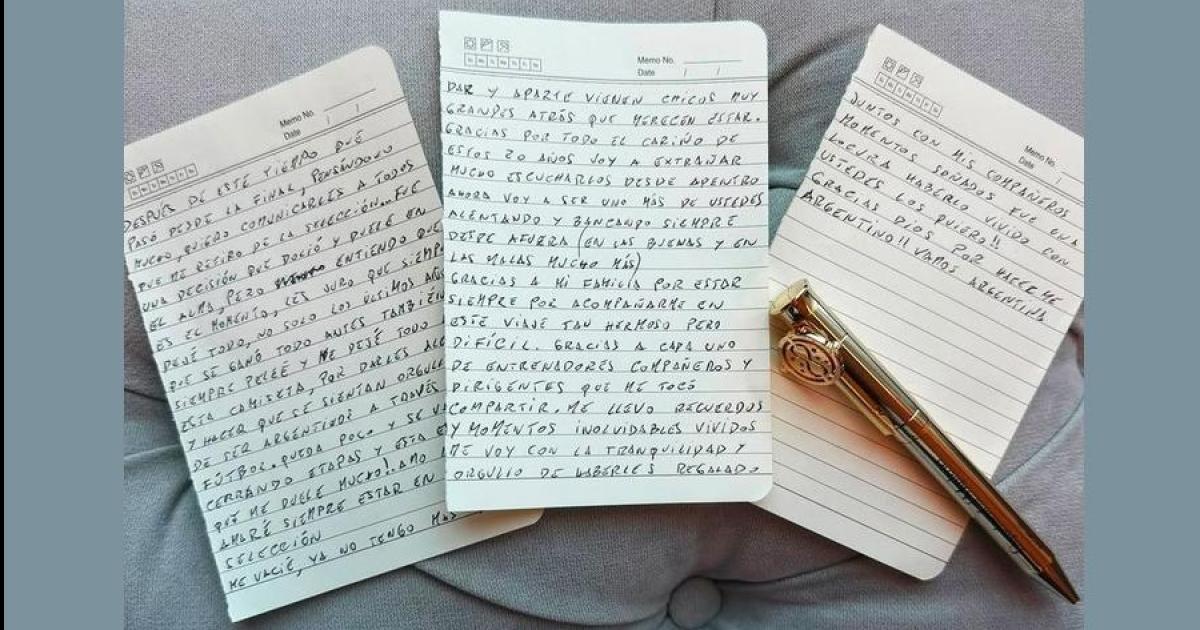 Memo No.
Date / /
DESPUÉS DE ESTE TIEMPO QUE
PASÓ DESDE LA FINAL, PENSÁNDOLO
MUCHO, QUIERO COMUNICARLES A TODOS
QUE ME RETIRO DE LA SELECCIÓN... FUE
UNA DECISIÓN QUE DOLIÓ Y DUELE EN
EL ALMA, PERO ENTIENDO QUE
ES EL MOMENTO, LES JURO QUE SIEMP
DEJÉ TODO, NO SOLO LOS ÚLTIMOS AÑOS
QUE SE GANÓ TODO ANTES TAMBIÉN
SIEMPRE PELEÉ Y ME DEJÉ TODO
ESTA CAMISETA, POR DARLES
Y HACER QUE SE SIENTAN
DE SER ARGENTINOS A TRAVÉS
FÚTBOL. QUEDA POCO Y SE
CERRANDO ETAPAS Y ESTA
QUE ME DUELE MUCHO! AMO
AMARÉ SIEMPRE ESTAR EN
SELECCIÓN
ME VACIÉ, YA NO TENGO MÁS
Memo No.
Date / /
DAR Y APARTE VIENEN CHICOS MUY
GRANDES ATRÁS QUE MERECEN ESTAR.
GRACIAS POR TODO EL CARIÑO DE
ESTOS 20 AÑOS VOY A EXTRAÑAR
MUCHO ESCUCHARLOS DESDE ADENTRO
AHORA VOY A SER UNO MÁS DE USTEDES
ALENTANDO Y BANCANDO SIEMPRE
DESDE AFUERA (EN LAS BUENAS Y EN
LAS MALAS MUCHO MÁS)
GRACIAS A MI FAMILIA POR ESTAR
SIEMPRE POR ACOMPAÑARME EN
ESTE VIAJE TAN HERMOSO PERO
DIFÍCIL. GRACIAS A CADA UNO
DE ENTRENADORES COMPAÑEROS Y
DIRIGENTES QUE ME TOCÓ
COMPARTIR. ME LLEVO RECUERDOS
Y MOMENTOS INOLVIDABLES VIVIDOS
ME VOY CON LA TRANQUILIDAD Y
ORGULLO DE HABERLES REGALADO
Memo No.
Date /
JUNTOS CON MIS COMPAÑEROS
MOMENTOS SOÑADOS FUE UNA
LOCURA HABERLO VIVIDO CON
USTEDES LOS QUIERO!!
GRACIAS DIOS POR HACERME
ARGENTINO!! VAMOS ARGENTINA